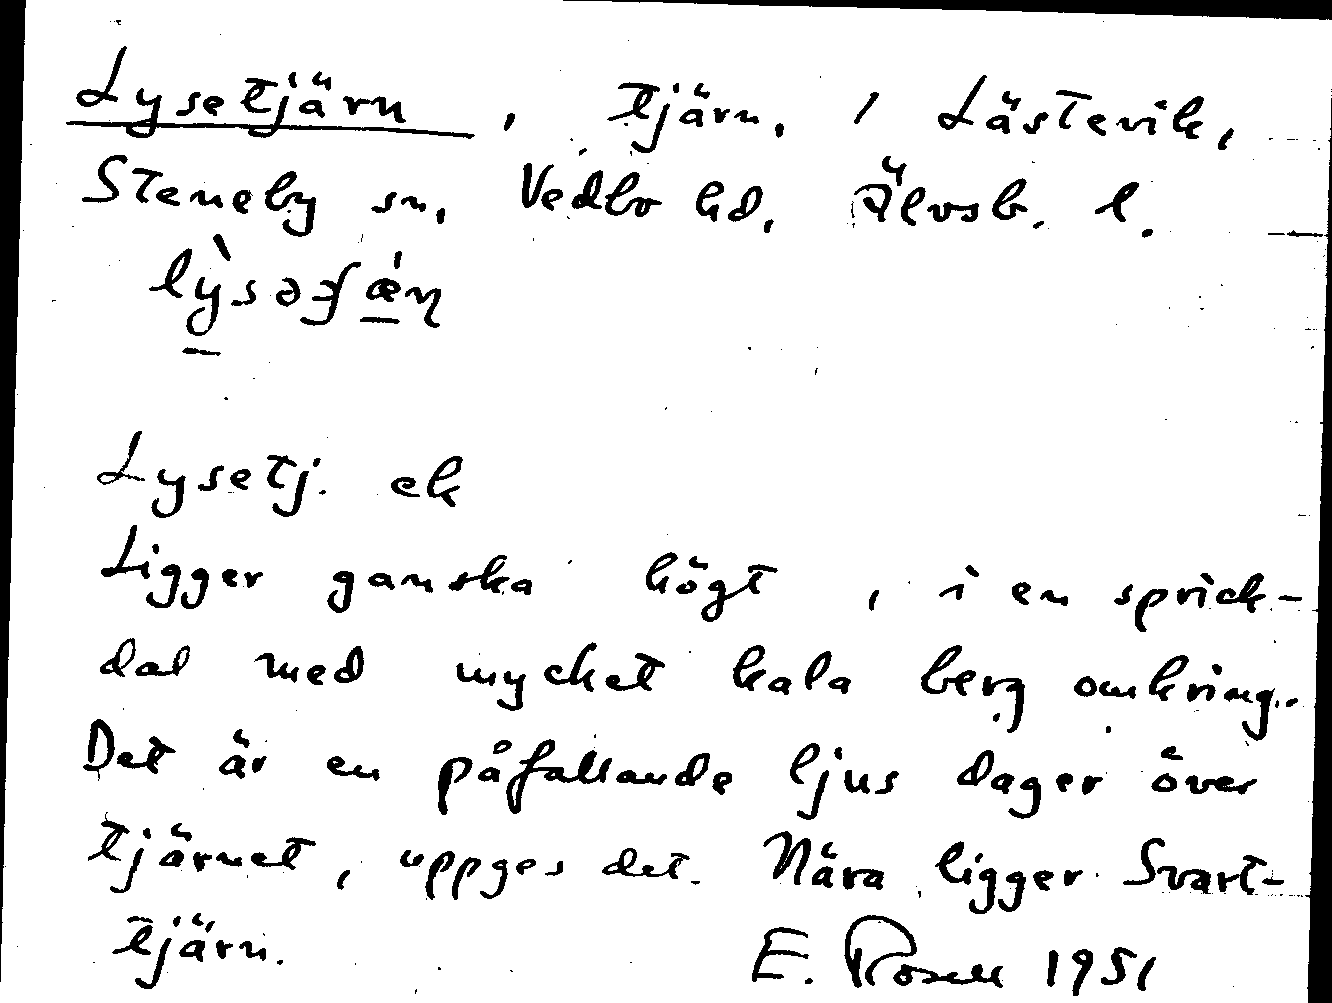 Lysetjärn, tjärn, i Låstevik,
Steneby sn, Vedbo hd, Älvsb. l.
lỳsəʒʃǽn
Lysetj. ek
Ligger ganska högt, i en sprick-
dal med mycket kala berg omkring.
Det är en påfallande ljus dager över
tjärnet, uppges det. Nära ligger Svart-
tjärn.
E. Rosell 1951